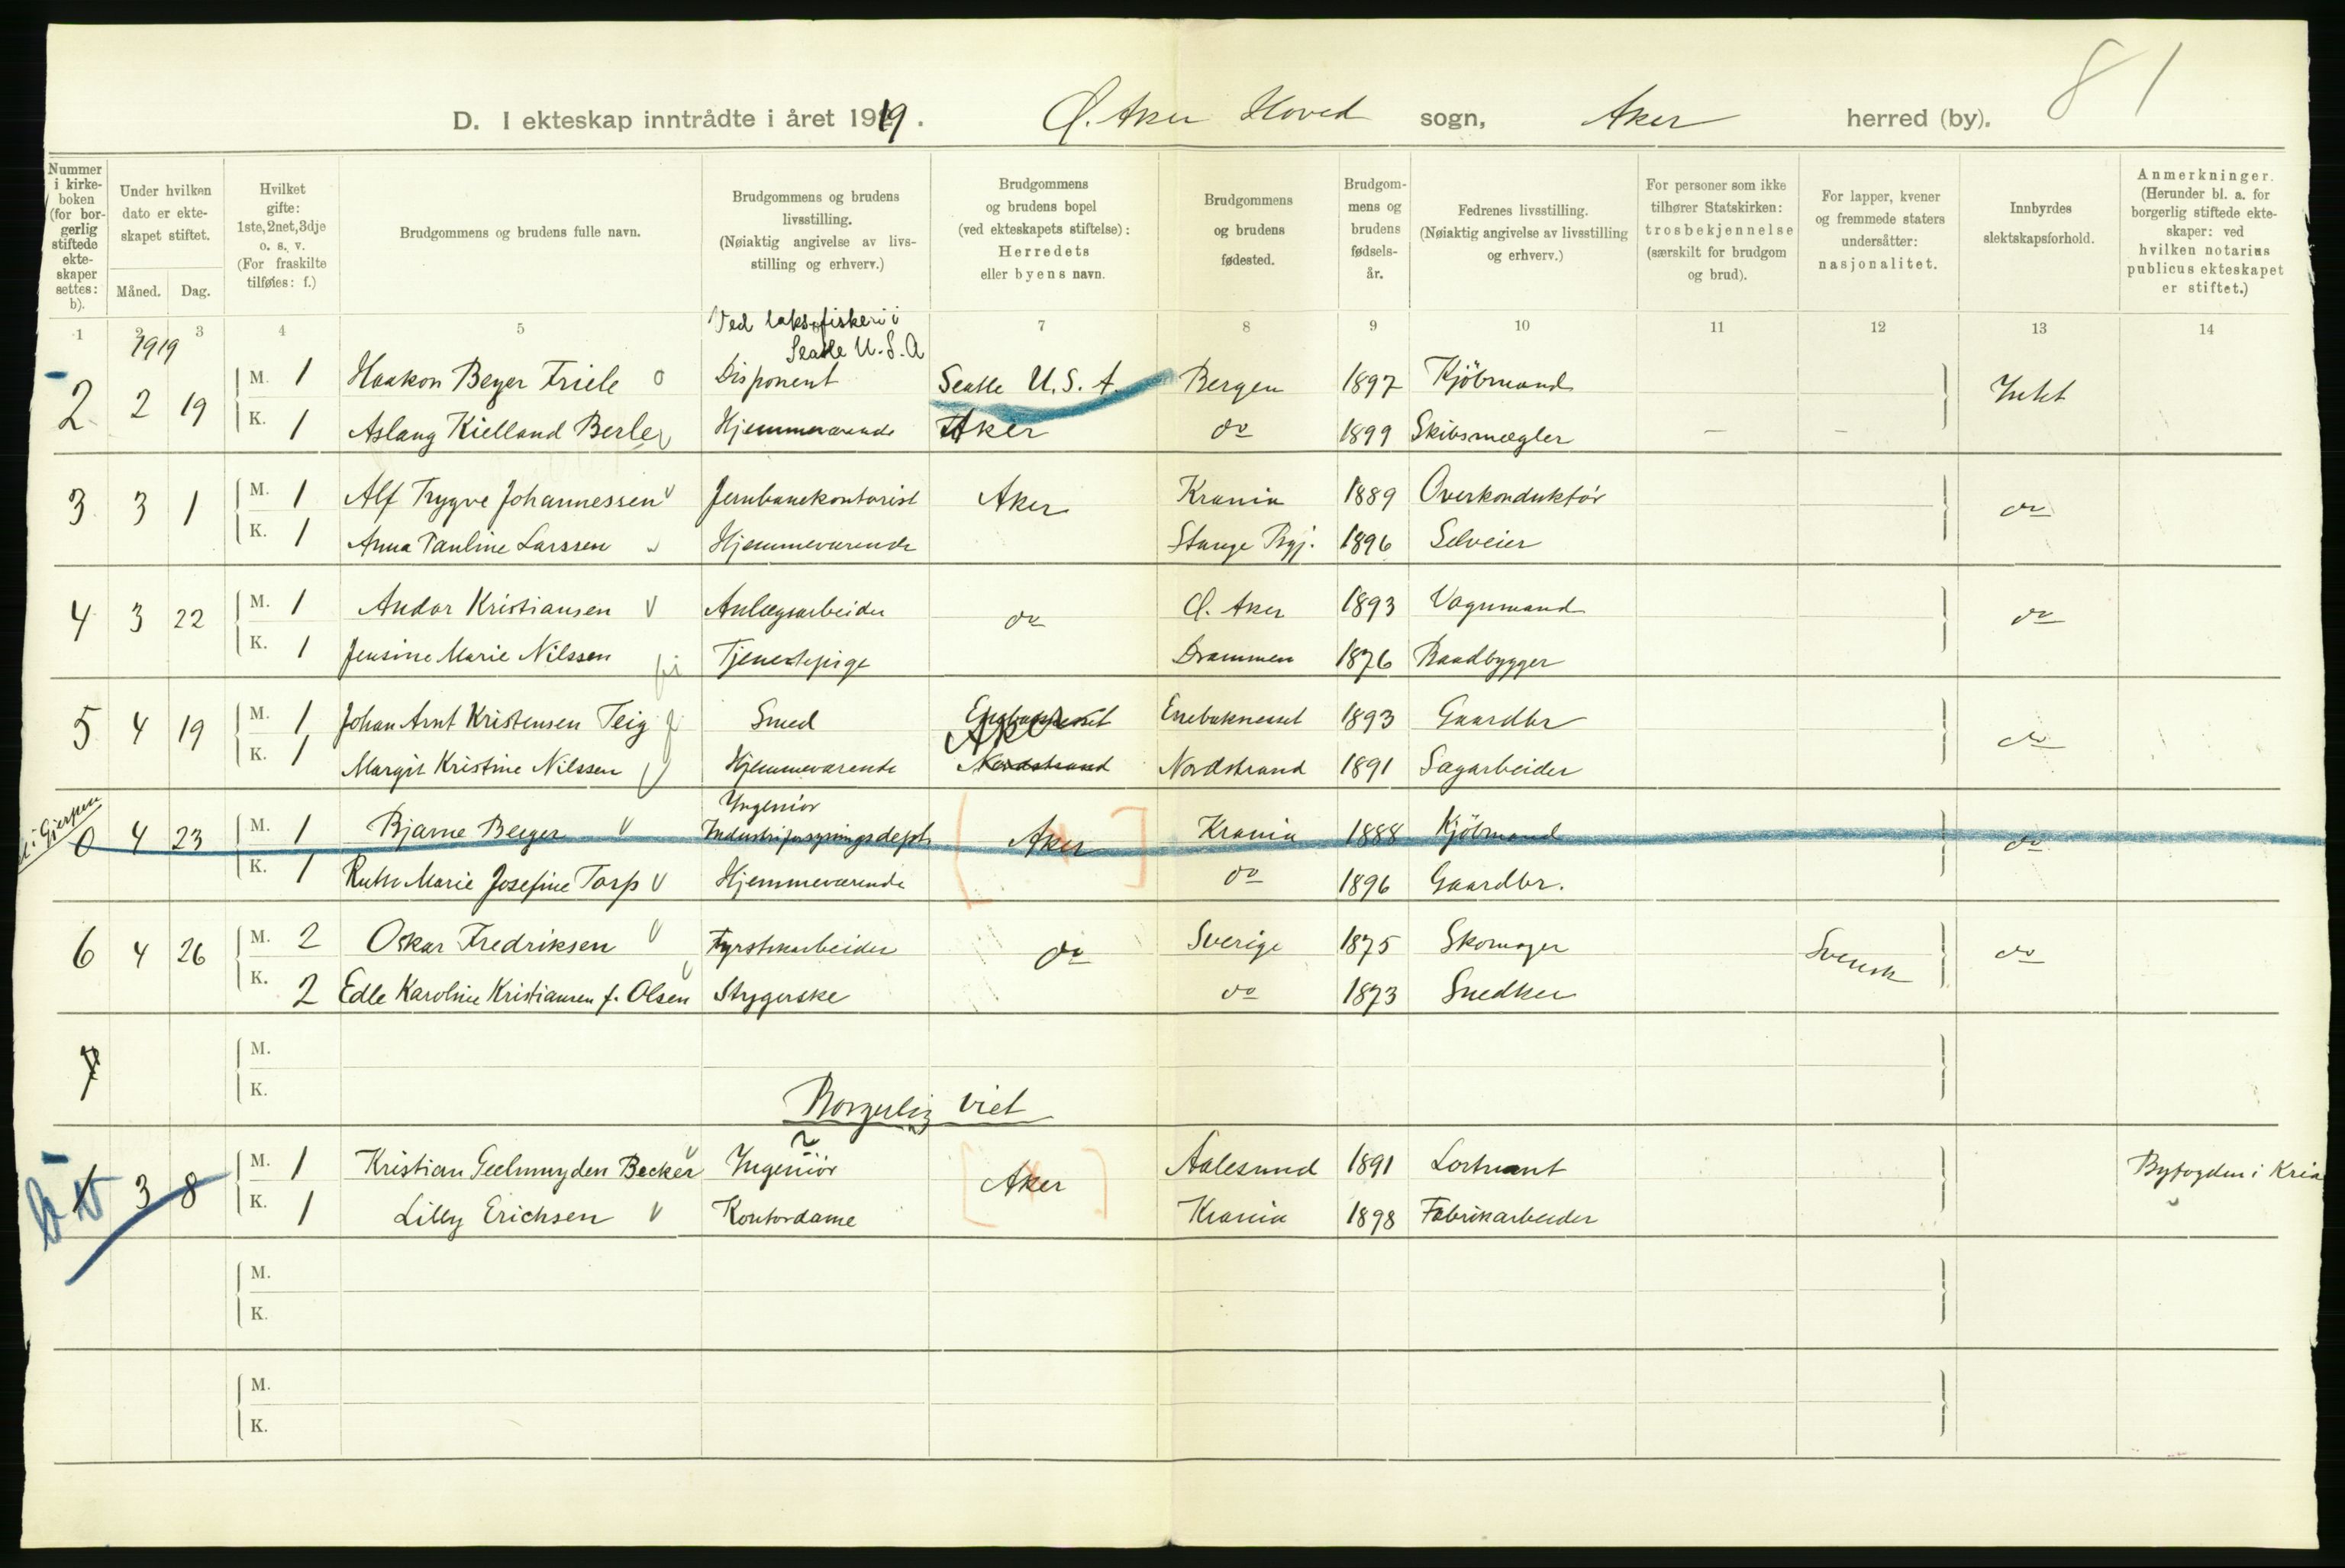 81
D. I ekteskap inntrådte i året 1919. Ø. Aker Hoved sogn, Aker herred (by).
Nummer i kirke-boken (for bor-gerlig stiftede ekte-skaper settes: b).
Under hvilken dato er ekte-skapet stiftet.
Måned. Dag.
Hvilket gifte: 1ste, 2net, 3dje o. s. v. (For fraskilte tilføies: f.)
Brudgommens og brudens fulle navn.
Brudgommens og brudens livsstilling. (Nøiaktig angivelse av livs-stilling og erhverv.)
Brudgommens og brudens bopel (ved ekteskapets stiftelse): Herredets eller byens navn.
Brudgommens og brudens fødested.
Brudgom-mens og brudens fødsels-år.
Fedrenes livsstilling. (Nøiaktig angivelse av livsstilling og erhverv.)
For personer som ikke tilhører Statskirken: trosbekjennelse (særskilt for brudgom og brud).
For lapper, kvener og fremmede staters undersåtter: nasjonalitet.
Innbyrdes slektskapsforhold.
Anmerkninger. (Herunder bl. a. for borgerlig stiftede ekte-skaper: ved hvilken notarius publicus ekteskapet er stiftet.)
1 2 3 4 5 7 8 9 10 11 12 13 14
1919
Ved laksefiskeri i
Seatle U.S.A
2 2 19 M. 1 Haakon Beyer Friele o Disponent Seatle U.S.A. Bergen 1897 Kjöbmand Intet
K. 1 Aslaug Kielland Berle v Hjemmeværende Aker do 1899 Skibsmægler — —
3 3 1 M. 1 Alf Trygve Johannessen v Jernbanekontorist Aker Krania 1889 Overkonduktör do
K. 1 Anna Pauline Larssen v Hjemmeværende Stange Pgj. 1896 Selveier
4 3 22 M. 1 Andor Kristiansen v Anlægsarbeider do Ø. Aker 1893 Vognmand do
K. 1 Jensine Marie Nilssen Tjenestepige Drammen 1876 Baadbygger
5 4 19 M. 1 Johan Arnt Kristensen Teig Smed Enebaknesset Aker Enebaknesset 1893 Gaardbr do
K. 1 Margit Kristine Nilssen v Hjemmeværende Nordstrand Nordstrand 1891 Sagarbeider
i Gjerpen
0 4 23 M. 1 Bjarne Berger v Ingeniör Industriforsyningsdept. Aker Krania 1888 Kjöbmand do
K. 1 Ruth Marie Josefine Torp v Hjemmeværende do 1896 Gaardbr.
6 4 26 M. 2 Oskar Fredriksen v Fyrstikarbeider do Sverige 1875 Skomager Svensk do
K. 2 Edle Karoline Kristiansen f. Olsen v Strygerske do 1873 Snedker
7 M.
K.
Borgerlig viet
1 3 8 M. 1 Kristian Geelmuyden Becker v Ingeniör Aker Aalesund 1891 Loitnant Byfogden i Kria
K. 1 Lilly Erichsen v Kontordame Krania 1898 Fabrikarbeider
M.
K.
M.
K.